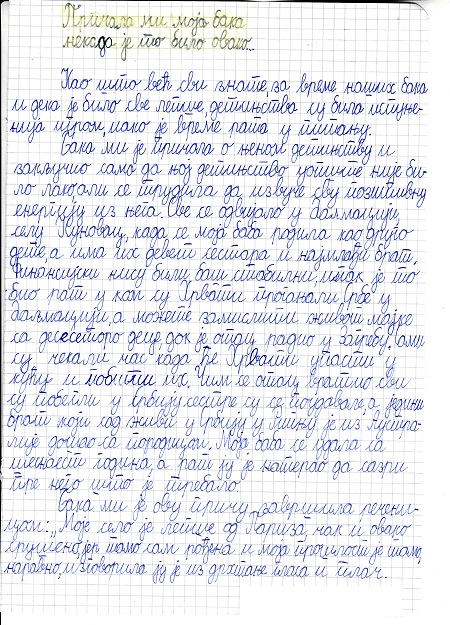 Причала ми моја бака
некада је то било овако...
Као што већ сви знате, за време наших бака
и дека је било све лепше, детињства су била испуње-
нија игром, иако је време рата у питању.
Бака ми је причала о њеном детињству и
закључио само да њој детињство уопште није би-
ло лако али се трудила да извуче сву позитивну
енергију из њега. Све се одвијало у Далмацији,
селу Куновац, када се моја баба родила као друго
дете, а има их девет сестара и најмлађи брат.
Финансијски нису били баш стабилни, ипак је то
био рат у ком су Хрвати прогањали Србе у
Далмацији, а можете замислити живот мајке
са десесеторо деце, док је отац радио у Загребу. Они
су чекали час када ће Хрвати упасти у
кућу и побити их. Чим се отац вратио сви
су побегли у Србију, сестре су се поудавале, а једини
брат који сад живи у Србији у Шиду је из Аустра-
лије дошао са породицом. Моја баба се удала са
шеснаест година, а рат ју је натерао да сазри
пре него што је требало.
Бака ми је ову причу завршила речени-
цом: „Моје село је лепше од Париза, чак и овако
срушено, јер тамо сам рођена и моја прошлост је тамо,
наравно, изговорила ју је из дрхтање гласа и плач.